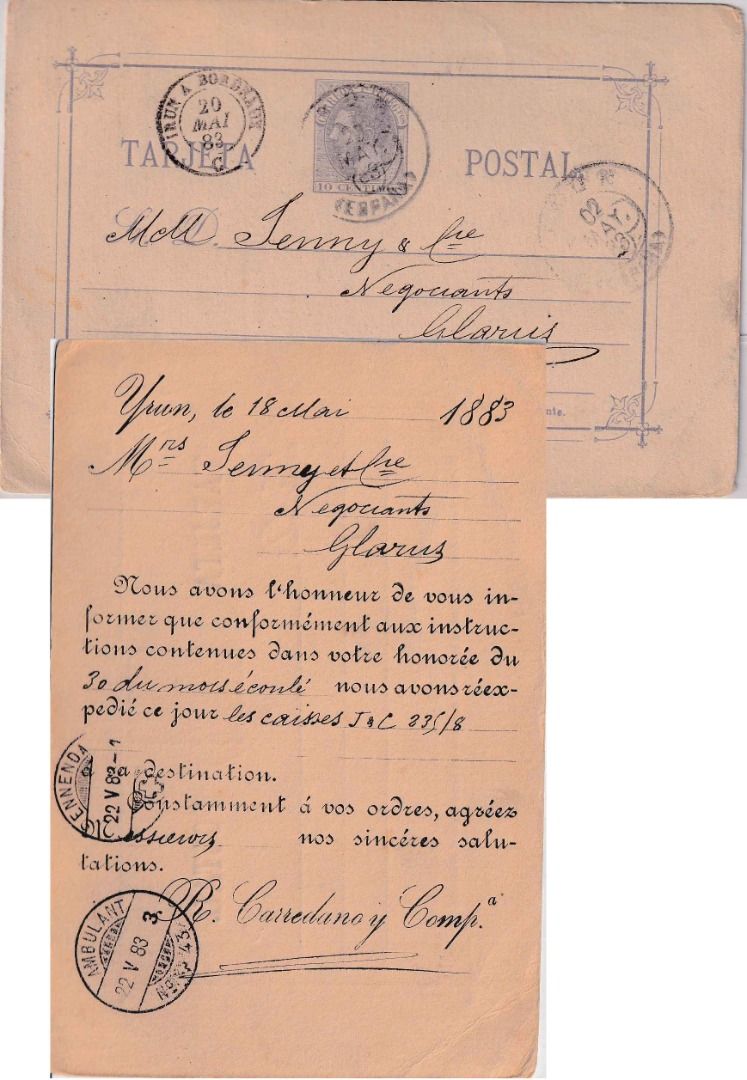 IRUN A BORDEAUX
20
MAI
83
C
CORREOS Y TELEGS
10 CENTIMOS
(ESPAÑA)
TARJETA POSTAL
S. D.
MM. Jenny & Cie
Negociants
Glarus
Yrun, le 18 Mai 1883
Mrs Jenny et Cie
Negociants
Glarus
Nous avons l'honneur de vous in-
former que conformément aux instruc-
tions contenues dans votre honorée du
30 du mois écoulé nous avons réex-
pedié ce jour les caisses J&C 235/8
à destination.
Constamment á vos ordres, agréez
Messieurs nos sincéres salu-
tations.
R. Carredano y Comp.a
ENNENDA
22 V 83-1
AMBULANT
22 V 83 3.